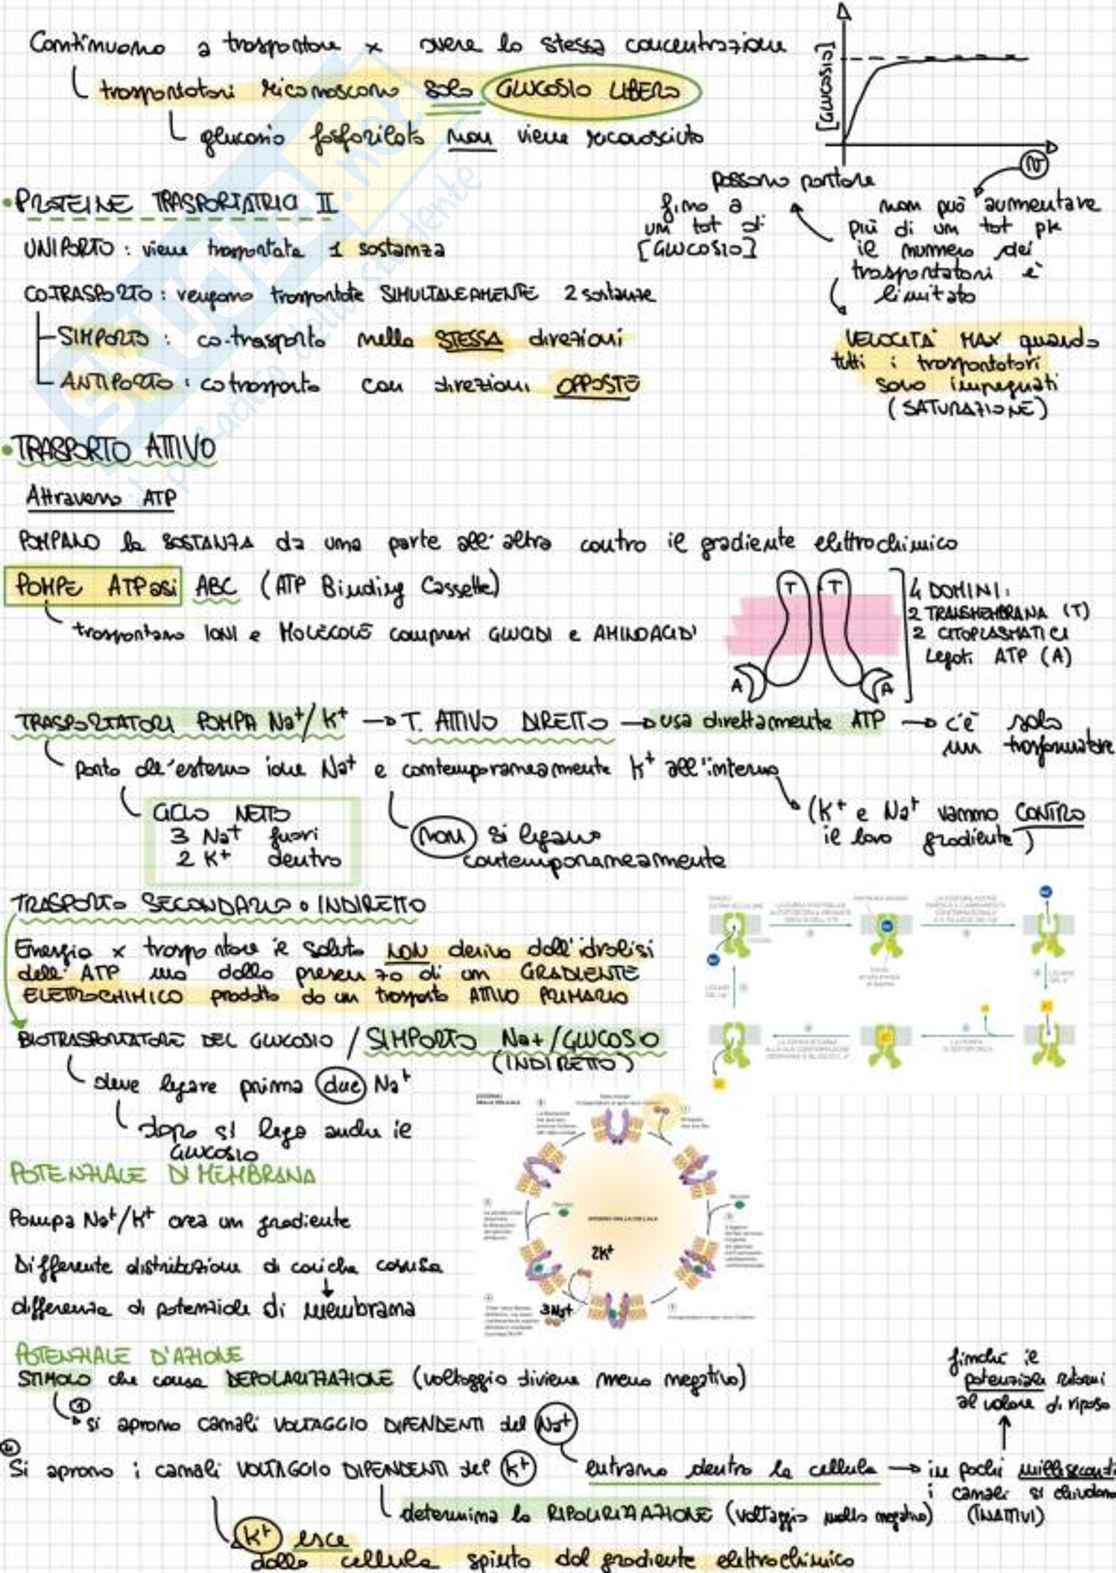 Continuono a trasportare x avere la stessa concentrazione
trasportatori riconoscono solo GLUCOSIO LIBERO
glucosio fosforilato non viene riconosciuto
[GLUCOSIO]
possono portare
fino a
un tot di
[GLUCOSIO]
non può aumentare
più di un tot pk
il numero dei
trasportatori è
limitato
VELOCITÀ MAX quando
tutti i trasportatori
sono impegnati
(SATURAZIONE)
• PROTEINE TRASPORTATRICI II
UNIPORTO : viene trasportata 1 sostanza
CO-TRASPORTO : vengono trasportate SIMULTANEAMENTE 2 sostanze
SIMPORTO : co-trasporto nella STESSA direzioni
ANTIPORTO : cotrasporto con direzioni OPPOSTE
• TRASPORTO ATTIVO
Attraverso ATP
POMPANO la SOSTANZA da una parte all'altra contro il gradiente elettrochimico
POMPE ATPasi ABC (ATP Binding Cassette)
trasportano IONI e MOLECOLE compresi GLUCIDI e AMINOACIDI
T T
A A
4 DOMINI:
2 TRANSMEMBRANA (T)
2 CITOPLASMATICI
Legati ATP (A)
TRASPORTATORI POMPA Na+/K+ → T. ATTIVO DIRETTO → usa direttamente ATP → c'è solo
un trasformatore
Porta all'esterno ione Na+ e contemporaneamente K+ all'interno
CICLO NETTO
3 Na+ fuori
2 K+ dentro
non si legano
contemporaneamente
(K+ e Na+ vanno CONTRO
il loro gradiente)
TRASPORTO SECONDARIO o INDIRETTO
Energia x trasportare il soluto NON deriva dall'idrolisi
dell'ATP ma dalla presenza di un GRADIENTE
ELETTROCHIMICO prodotto da un trasporto ATTIVO PRIMARIO
BIOTRASPORTATORE DEL GLUCOSIO / SIMPORTO Na+/GLUCOSIO
(INDIRETTO)
deve legare prima due Na+
dopo si lega anche il
GLUCOSIO
POTENZIALE DI MEMBRANA
Pompa Na+/K+ crea un gradiente
Differente distribuzione di cariche causa
differenza di potenziale di membrana
INTERNO DELLA CELLULA
2K+
3Na+
POTENZIALE D'AZIONE
STIMOLO che causa DEPOLARIZZAZIONE (voltaggio diviene meno negativo)
① si aprono canali VOLTAGGIO DIPENDENTI del Na+
② Si aprono i canali VOLTAGGIO DIPENDENTI del K+
entrano dentro la cellula → in pochi millisecondi
i canali si chiudono
(INATTIVI)
finchè il
potenziale ritorni
al valore di riposo
determina la RIPOLARIZZAZIONE (voltaggio molto negativo)
K+ esce
dalla cellula spinto dal gradiente elettrochimico